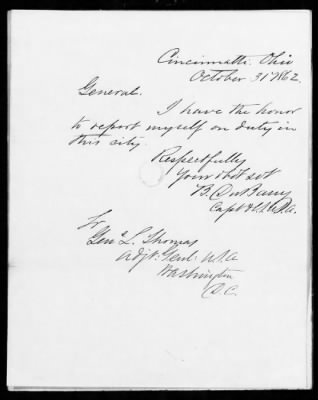 Cincinnatti Ohio
October 31st 1862.
General.
I have the honor
to report myself on duty in
this city.
Respectfully
Your obt svt
B. Du Barry
Capt & C.S. U.S.A.
To
Genl L. Thomas
Adjt. Genl. U.S.A
Washington
D.C.